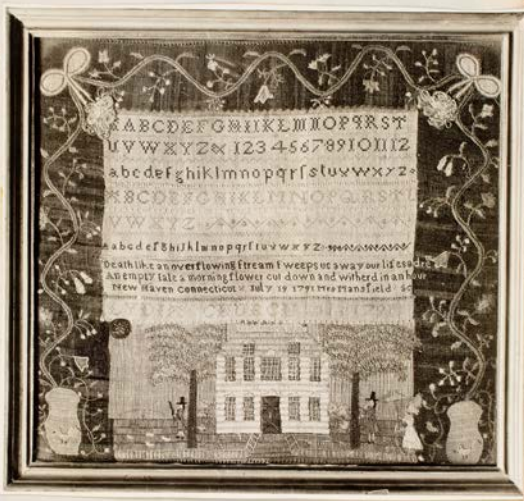 ABCDEFGHIKLMNOPQRST
UVWXYZ 123456789101112
abcdefghiklmnopqrſstuvwxyz
ABCDEFGHIKLMNOPQRST
UVWXYZ
abcdefghijklmnopqrſtuvwxyz
Death like an overflowing ſtream ſweeps us away our life's a
An empty tale a morning flower cut down and witherd in an hour
New Haven Connecticut July 19 1791 Mrs Mansfield